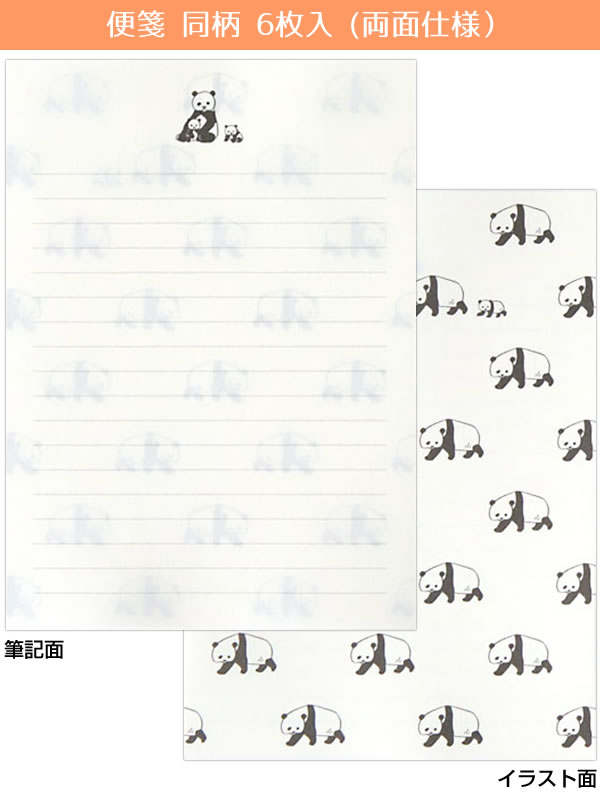 便箋 同柄 6枚入 (両面仕様)
筆記面
イラスト面